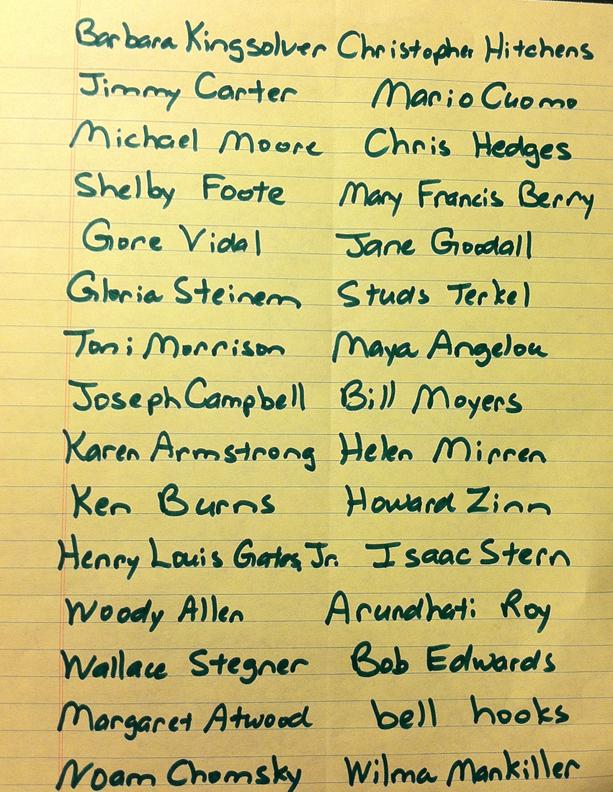 Barbara Kingsolver Christopher Hitchens
Jimmy Carter Mario Cuomo
Michael Moore Chris Hedges
Shelby Foote Mary Francis Berry
Gore Vidal Jane Goodall
Gloria Steinem Studs Terkel
Toni Morrison Maya Angelou
Joseph Campbell Bill Moyers
Karen Armstrong Helen Mirren
Ken Burns Howard Zinn
Henry Louis Gates, Jr. Isaac Stern
Woody Allen Arundhati Roy
Wallace Stegner Bob Edwards
Margaret Atwood bell hooks
Noam Chomsky Wilma Mankiller